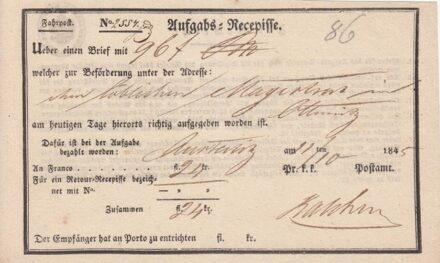 Fahrpost. No. 1554. Aufgabs-Recepisse. 86
Ueber einen Brief mit 96 f
welcher zur Beförderung unter der Adresse:
den löblichen Magistrat in
Ollmütz
am heutigen Tage hierorts richtig aufgegeben worden ist.
Dafür ist bei der Aufgabe
bezahlt worden:
Austerlitz am 11 ten 10 1845
An Franco fl. 24 kr. Pr. k. k. Postamt.
Für ein Retour-Recepisse bezeich-
net mit N. — » — »
Zusammen fl. 24 kr.
Der Empfänger hat an Porto zu entrichten fl. kr.